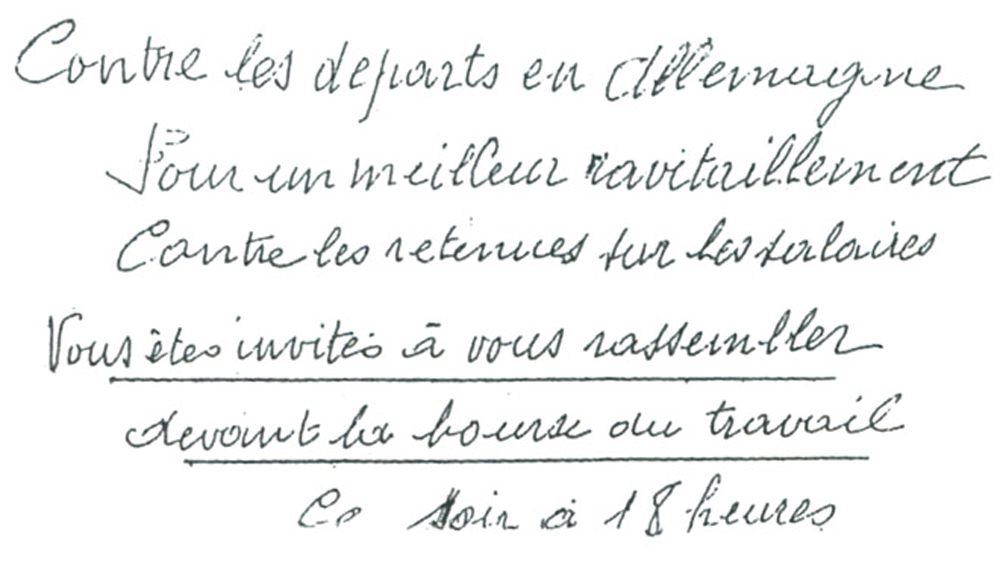 Contre les departs en Allemagne
Pour un meilleur ravitaillement
Contre les retenues sur les salaires
Vous êtes invités à vous rassembler
devant la bourse du travail
Ce soir à 18 heures